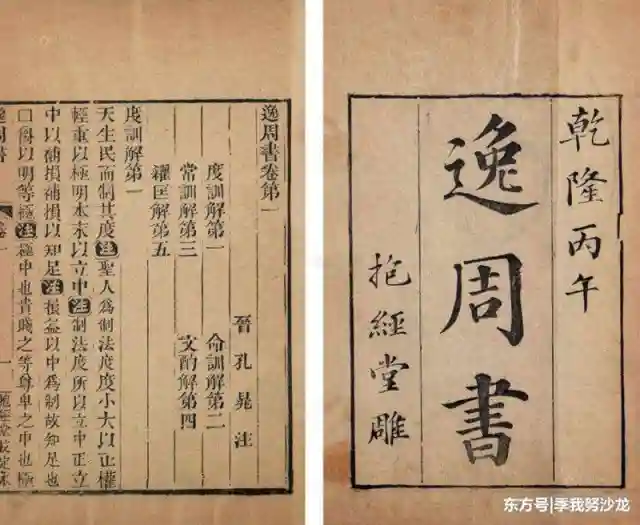 乾隆丙午
逸周書
抱經堂雕
逸周書卷第一
晉孔晁注
度訓解第一 命訓解第二
常訓解第三 文酌解第四
糴匡解第五
度訓解第一
天生民而制其度注聖人爲制法度度小大以正權
輕重以極明本末以立中注制法度所以立中正立
中以補損補損以知足注損益以中爲制故知足也
□爵以明等極注極中也貴賤之等尊卑之中也極
逸周書
卷一
一
东方号|季我努沙龙